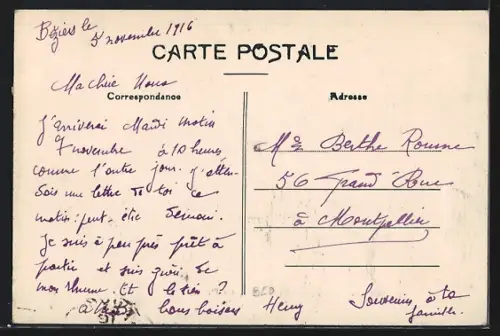 Béziers le
5 novembre 1916
CARTE POSTALE
Ma chère Nono
Correspondance
Adresse
J'arriverai Mardi matin
7 novembre à 10 heures
comme l'autre jour. J'atten-
une lettre de toi ce
matin peut être demain.
Je suis à peu près prêt à
partir et suis guéri de
mon rhume. Et le tien ?
bons baisers Henry
Mme Berthe Roume
56 Grand'Rue
à Montpellier
Souvenirs à ta
famille.